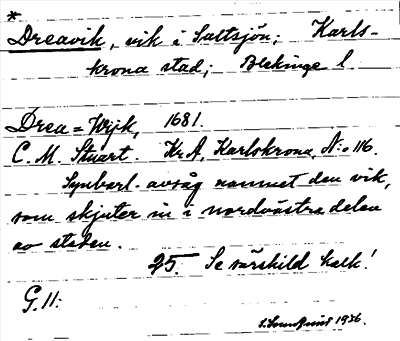 *
Dreavik, vik i Saltsjön; Karls-
krona stad; Blekinge l.
Drea=Wijk, 1681.
C. M. Stuart. Kr A, Karlskrona, N:o 116.
Synbarl. avsåg namnet den vik,
som skjuter in i nordvästra delen
av staden.
25. Se särskild kalk!
G. 11:
1936.